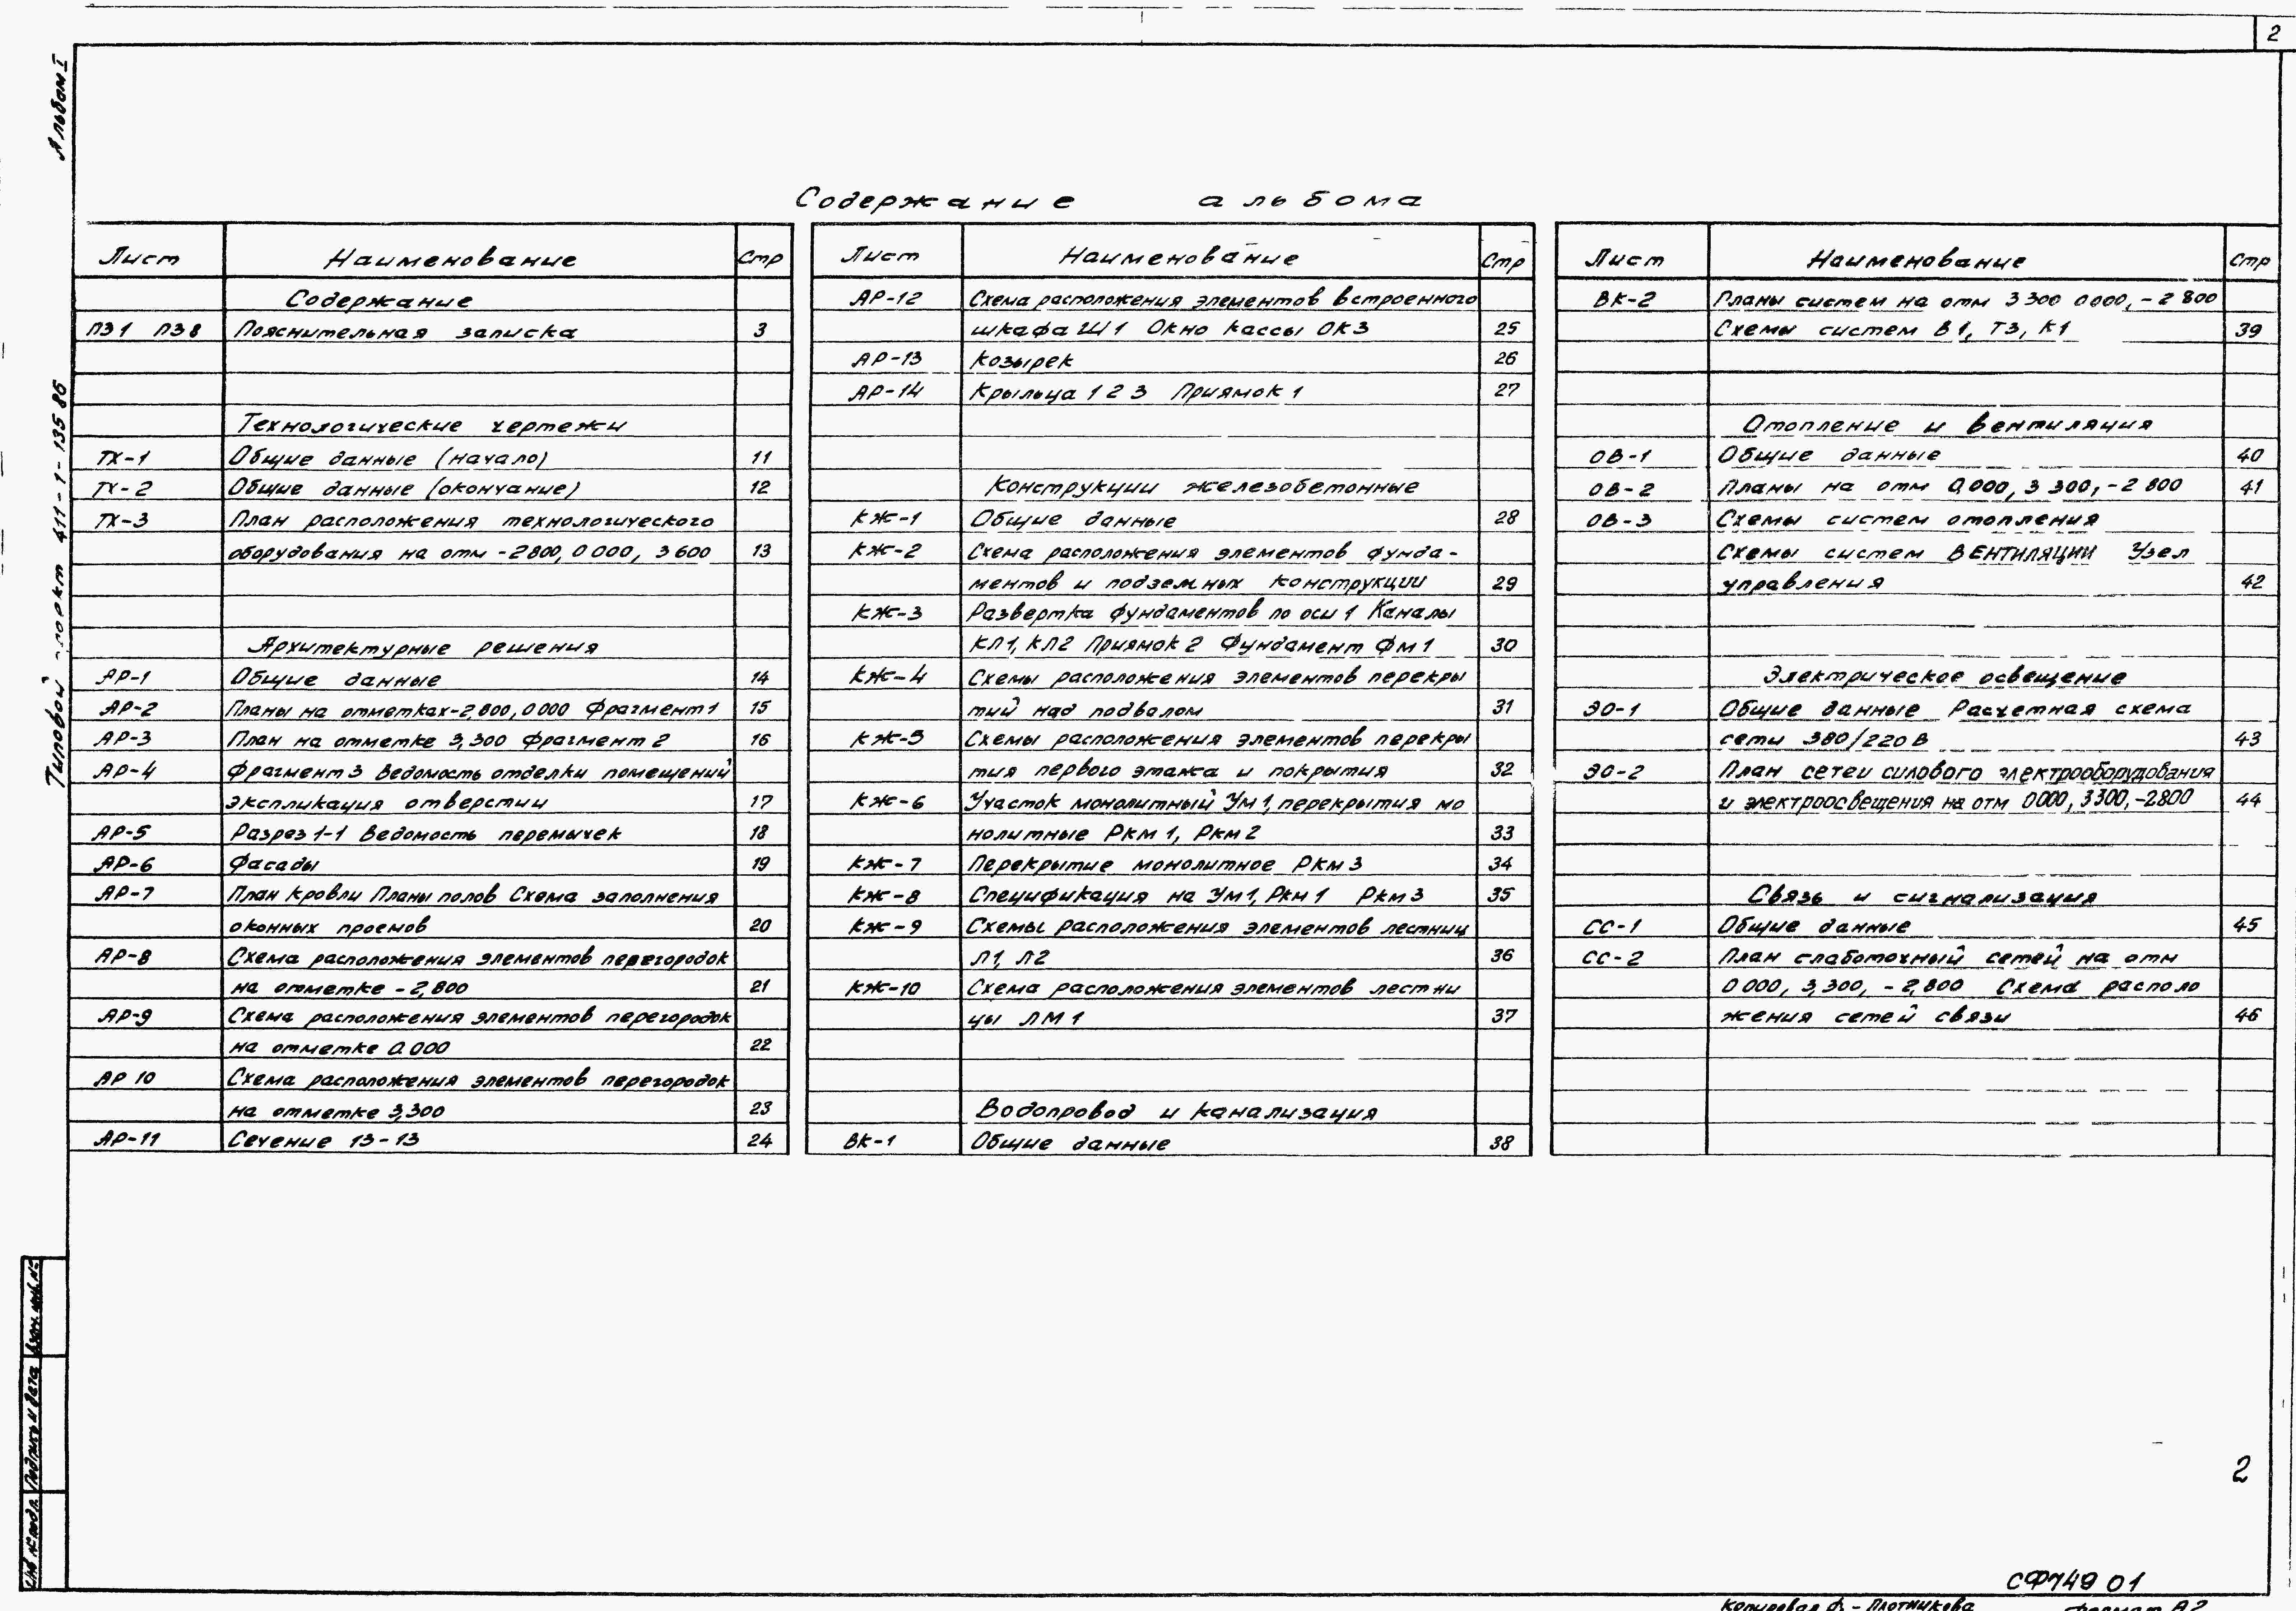 2
Альбом I
Типовой проект 411-1-135 86
Содержание альбома
Лист Наименование Стр
Содержание
ПЗ 1 ПЗ 8 Пояснительная записка 3
Технологические чертежи
ТХ-1 Общие данные (начало) 11
ТХ-2 Общие данные (окончание) 12
ТХ-3 План расположения технологического
оборудования на отм -2 800, 0 000, 3 600 13
Архитектурные решения
АР-1 Общие данные 14
АР-2 Планы на отметках-2,800, 0 000 Фрагмент 1 15
АР-3 План на отметке 3,300 Фрагмент 2 16
АР-4 Фрагмент 3 Ведомость отделки помещений
Экспликация отверстии 17
АР-5 Разрез 1-1 Ведомость перемычек 18
АР-6 Фасады 19
АР-7 План кровли Планы полов Схема заполнения
оконных проемов 20
АР-8 Схема расположения элементов перегородок
на отметке -2,800 21
АР-9 Схема расположения элементов перегородок
на отметке 0.000 22
АР 10 Схема расположения элементов перегородок
на отметке 3,300 23
АР-11 Сечение 13-13 24
Лист Наименование Стр
АР-12 Схема расположения элементов встроенного
шкафа Ш 1 Окно кассы ОК 3 25
АР-13 Козырек 26
АР-14 Крыльца 1 2 3 Приямок 1 27
Конструкции железобетонные
КЖ-1 Общие данные 28
КЖ-2 Схема расположения элементов фунда-
ментов и подземных конструкции 29
КЖ-3 Развертка фундаментов по оси 1 Каналы
КЛ1, КЛ2 Приямок 2 Фундамент ФМ 1 30
КЖ-4 Схемы расположения элементов перекры
тий над подвалом 31
КЖ-5 Схемы расположения элементов перекры
тия первого этажа и покрытия 32
КЖ-6 Участок монолитный Ум 1, перекрытия мо
нолитные Ркм 1, Ркм 2 33
КЖ-7 Перекрытие монолитное Ркм 3 34
КЖ-8 Спецификация на Ум 1, Ркм 1 Ркм 3 35
КЖ-9 Схемы расположения элементов лестниц
Л1, Л2 36
КЖ-10 Схема расположения элементов лестни
цы ЛМ 1 37
Водопровод и канализация
ВК-1 Общие данные 38
Лист Наименование Стр
ВК-2 Планы систем на отм 3 300 0 000, -2 800
Схемы систем В 1, Т3, К1 39
Отопление и вентиляция
ОВ-1 Общие данные 40
ОВ-2 Планы на отм 0,000, 3 300, -2 800 41
ОВ-3 Схемы систем отопления
Схемы систем вентиляции Узел
управления 42
Электрическое освещение
ЭО-1 Общие данные Расчетная схема
сети 380/220 В 43
ЭО-2 План сетеи силового электрооборудования
и электроосвещения на отм 0 000, 3 300, -2800 44
Связь и сигнализация
СС-1 Общие данные 45
СС-2 План слаботочный сетей на отм
0 000, 3,300, -2,800 Схема располо
жения сетей связи 46
Инв № подл. Подпись и дата Взам. инв. №
2
СФ749 01
Копировал Ф - Плотникова Формат А2